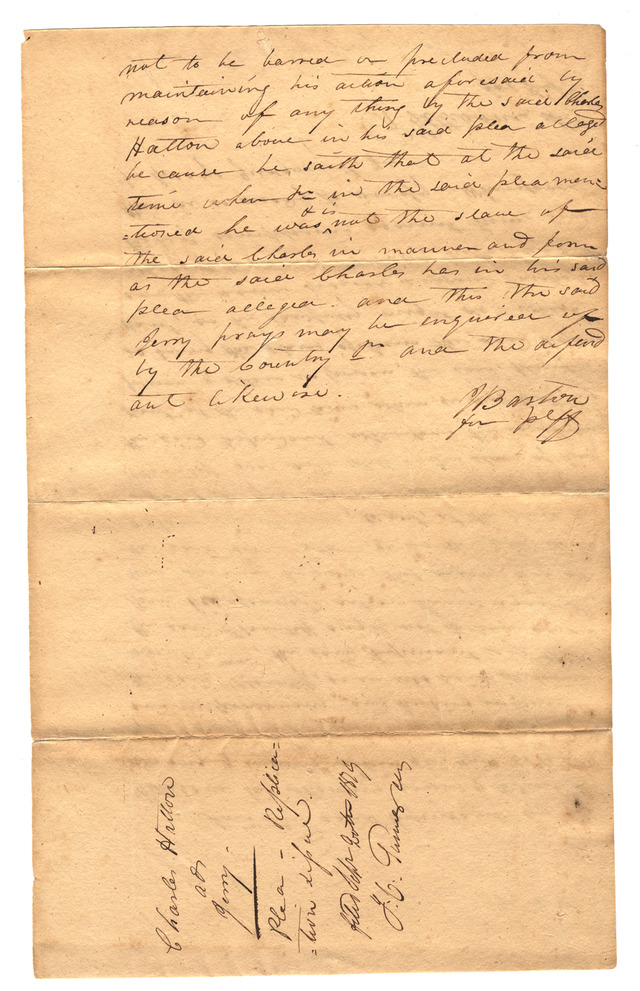 not to be barred or precluded from
maintaining his action aforesaid by
reason of any thing by the said Charles
Hatton above in his said plea alleged
because he saith that at the said
time when &c in the said plea men=
=tioned he was & is not the slave of
the said Charles in manner and form
as the said Charles has in his said
plea alleged. and this the said
Jerry prays may be enquired of
by the Country &c and the defend
ant likewise.
Barton
for plff
Charles Hatton
ads
Jerry -
Plea - Replica=
=tion & issue.
filed 1819